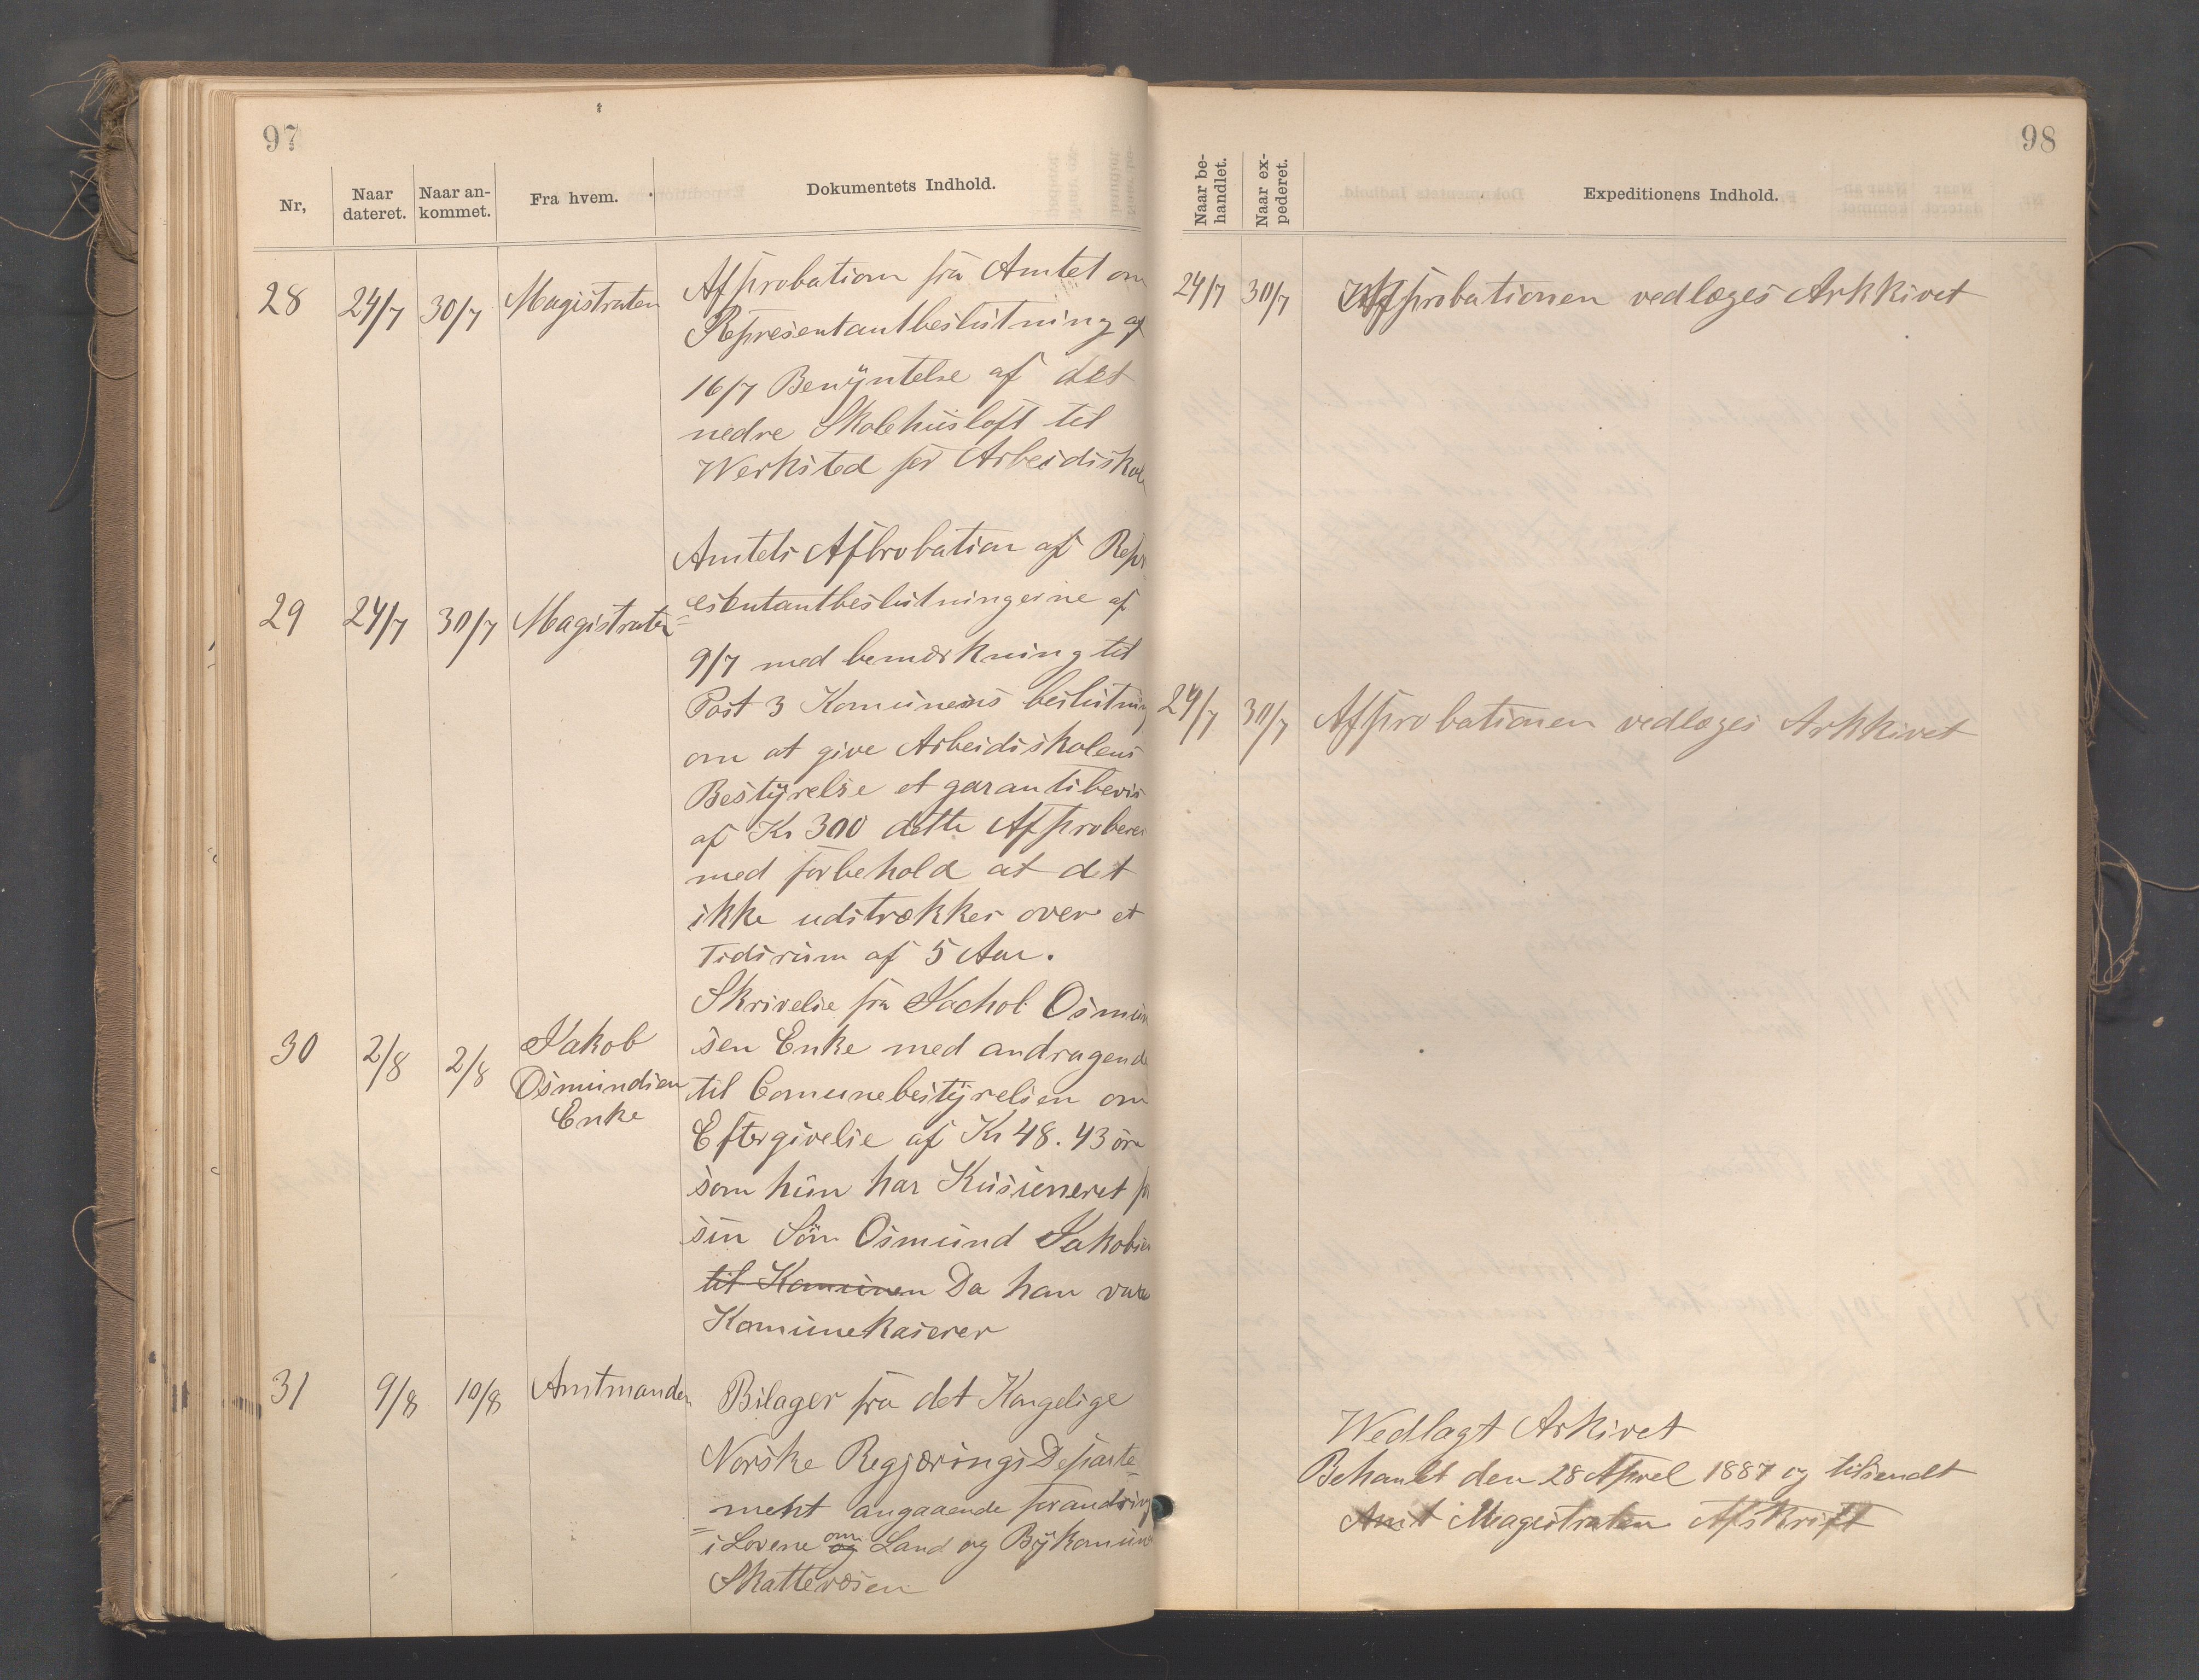 97
Nr, Naar dateret. Naar an-kommet. Fra hvem. Dokumentets Indhold.
28 24/7 30/7 Magistraten
Afprobation fra Amtet om
Representantbeslutning af
16/7 Benÿntelse af det
nedre Skolehusloft til
Werksted for Arbeidiskole
29 24/7 30/7 Magistraten
Amtets Afbrobation af Repr
esentantbeslutningerne af
9/7 med bemærkning til
Post 3 Komunens beslutning
om at give Arbeidsskolens
Bestÿrelse et garantibevis
af Kr 300 dette Afproberes
med forbehold at det
ikke udstrækker over et
Tidsrum af 5 Aar.
30 2/8 2/8 Jakob
Osmundsen
Enke
Skrivelse fra Jachob Osmun
sen Enke med andragende
til Comunebestÿrelsen om
Eftergivelse af Kr 48.43 öre
som hun har Kusioneret for
sin Sön Osmund Jakobsen
til Komunen Da han vare
Komunekaserer
31 9/8 10/8 Amtmanden
Bilager fra det Kongelige
Norske RegjæringsDeparte
ment angaaende forandring
i Lovene og om Land og Bÿkomune
Skattevæsen
98
Naar be-handlet. Naar ex-pederet. Expeditionens Indhold.
24/7 30/7 Afprobationen vedlæges Arkkivet
24/7 30/7 Afprobationen vedlæges Arkkivet
Wedlagt Arkivet
Behanlet den 28 April 1887 og tilsendt
Amt Magistraten Afskrift